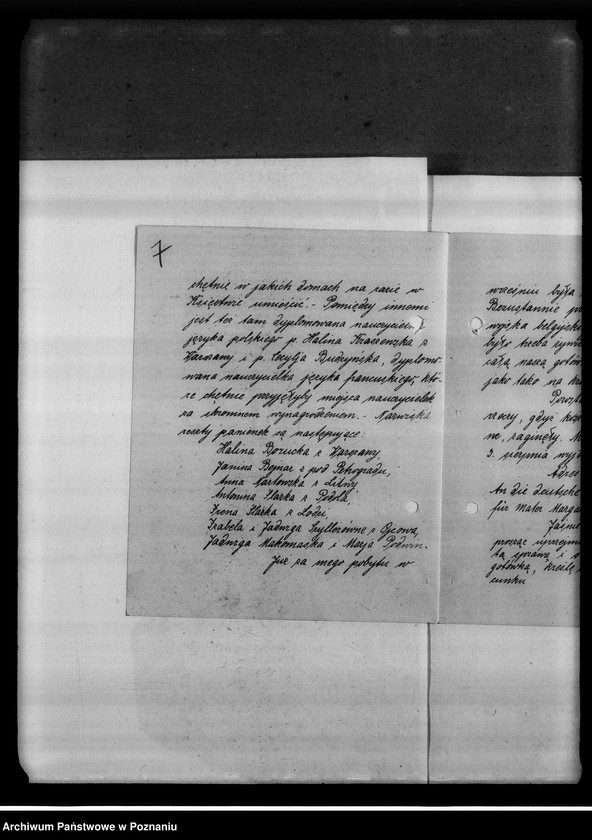 7
chętnie w jakich domach na razie w
Księstwie umieścić. - Pomiędzy innemi
jest też tam dyplomowana nauczycielka
języka polskiego p. Halina z
Warszawy i p. Cecylja Budzyńska, dyplomo-
wana nauczycielka języka francuskiego, któ-
re chętnie przyjęłyby miejsca nauczycielek
za skromnem wynagrodzeniem. - Nazwiska
reszty panienek są następujące:
Halina Borucka z Warszawy
Janina Bejnar z pod Petrogradu,
Anna z Litwy
Antonina Skarka z Podola,
Irena Skarka z Łodzi
Izabela i Jadwiga Szyllerówne z Ojcowa,
Jadwiga Makomaska i Marja Podwin.
Już za mego pobytu w
wrześniu była
Bezustannie
wojska belgijskie
było trzeba
całą naszą gotów
jako tako na
rzeczy, gdyż
ne, zaginęły.
3. sierpnia
Adres
An die deutsche
für Mater
prosząc uprzejmie
tą sprawą i
gotówką, kreślę
cunku
Archiwum Państwowe w Poznaniu